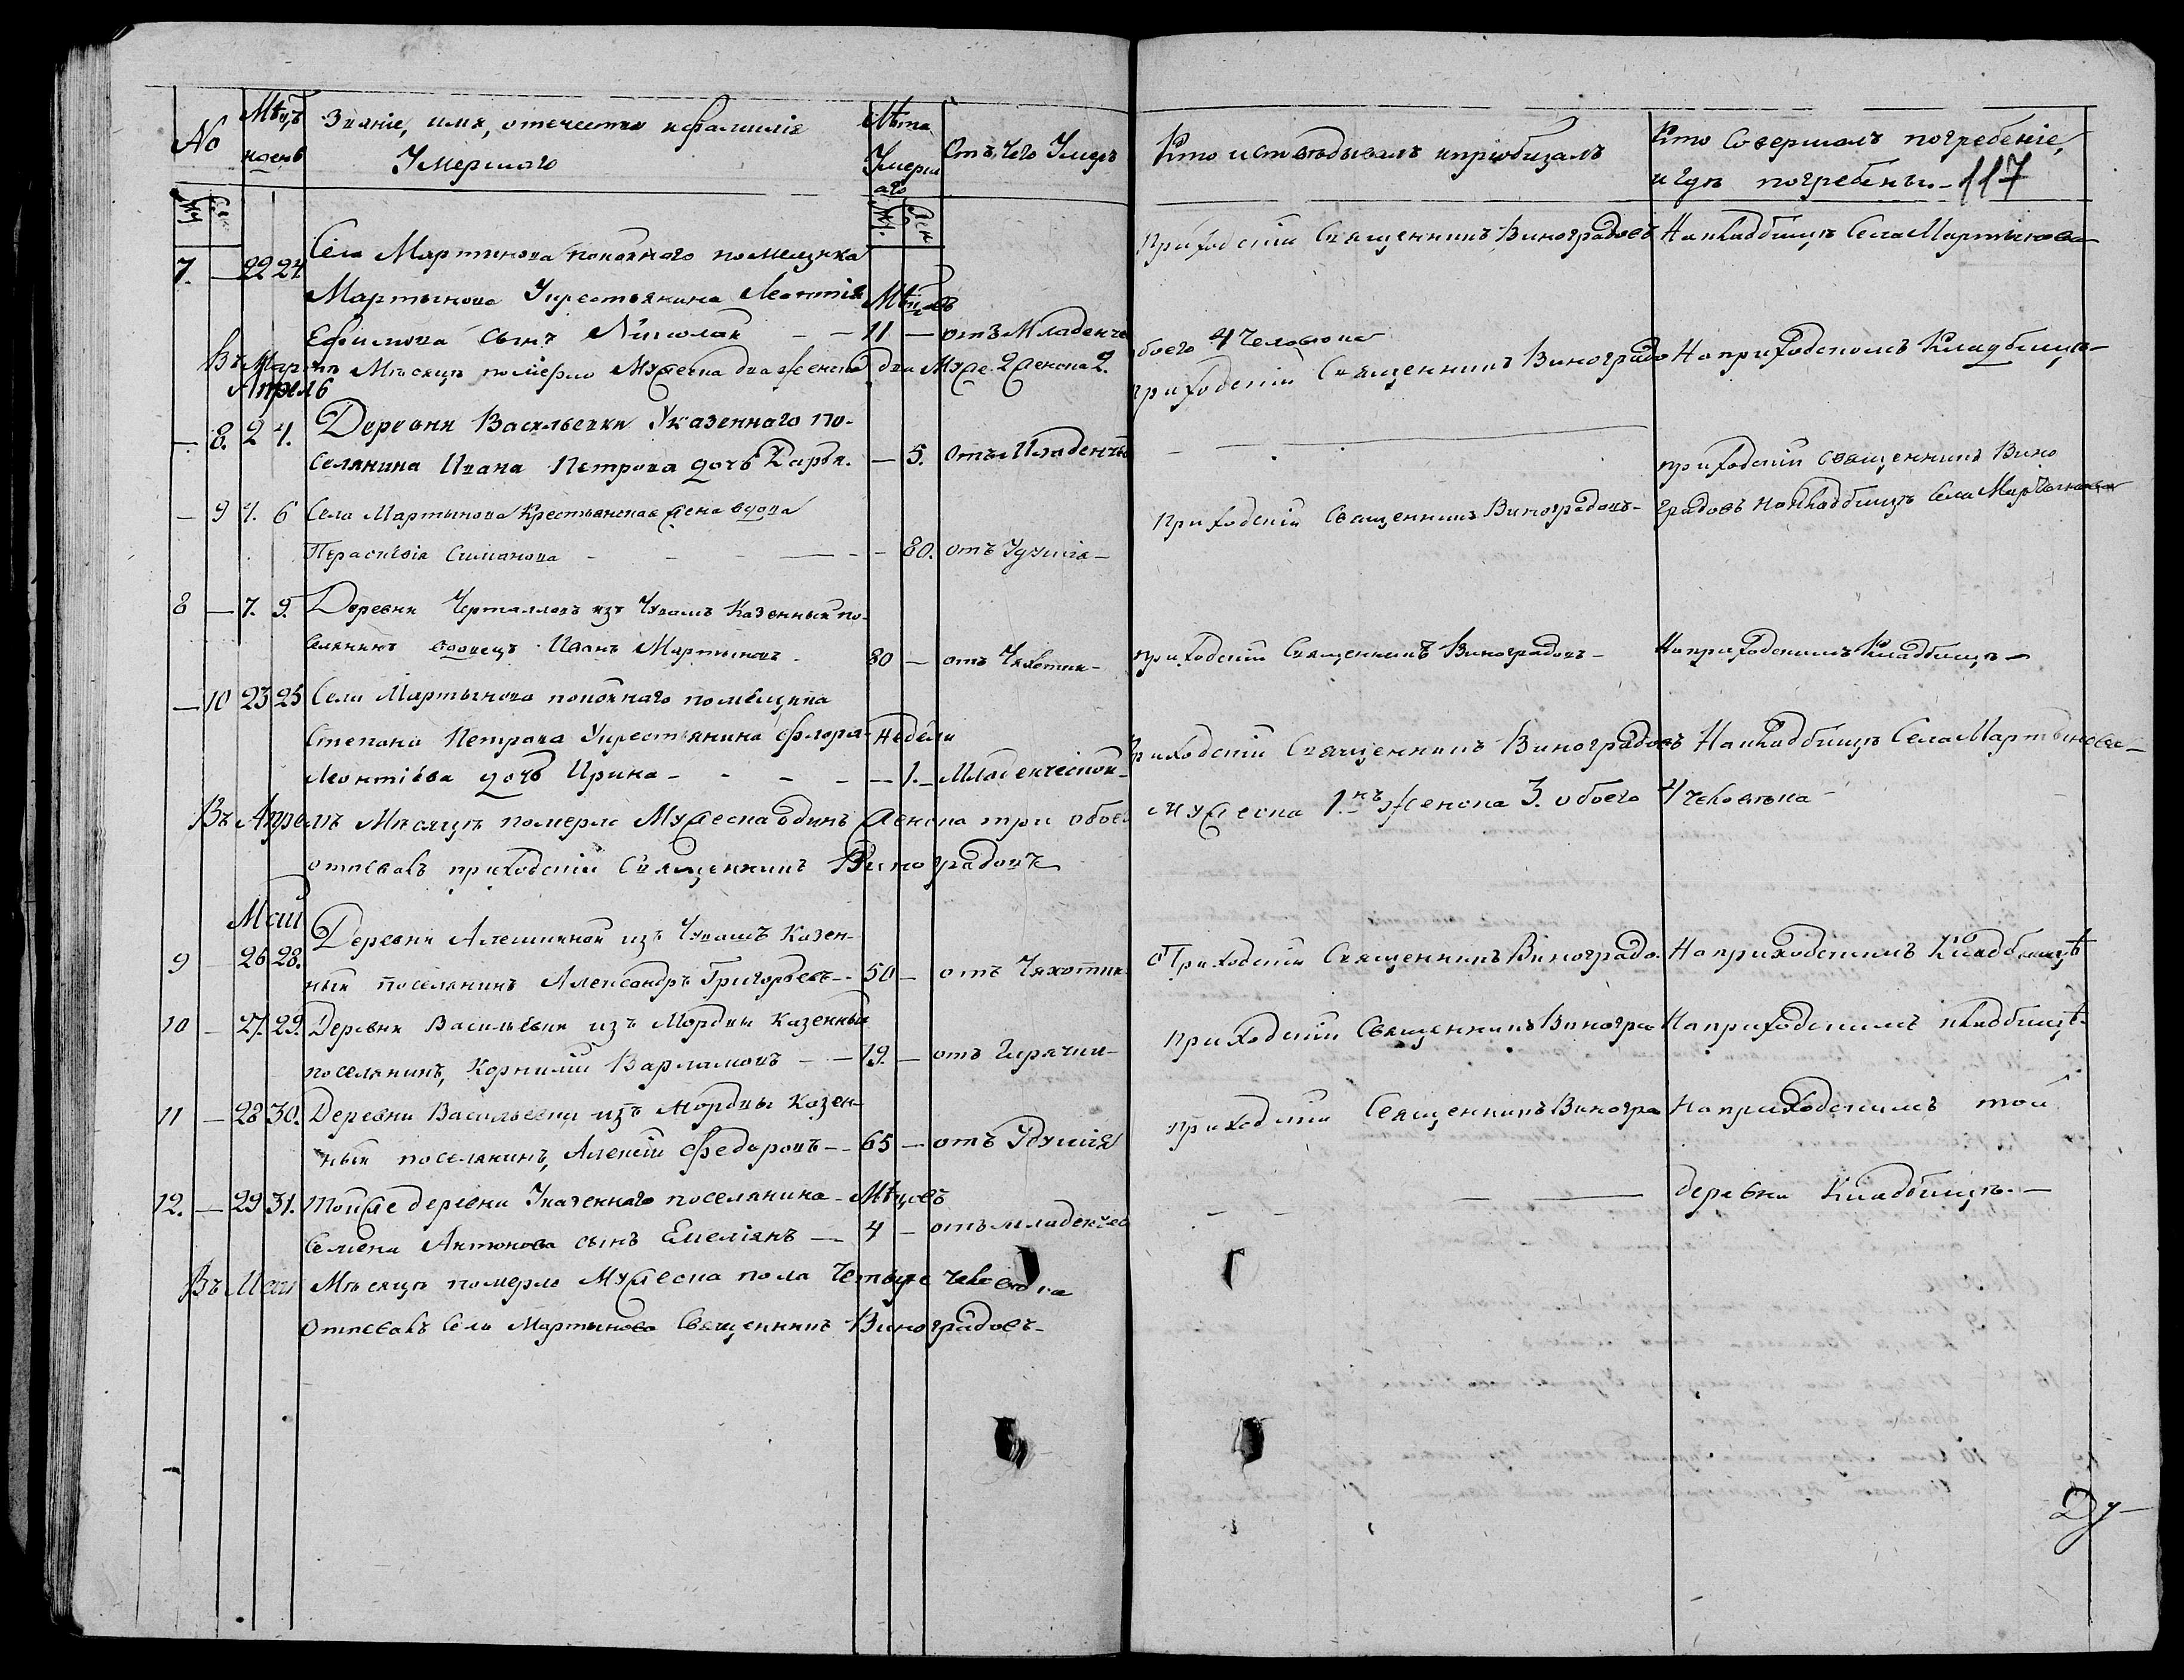 No
Мѣцъ
и день
Званіе, имя, отечество и фамилія
Умершаго
Лѣта
Умерш
аго
Отъ чего Умеръ
Муж
Жен
Муж.
Жен
7. — 22 24
Села Мартынова покойнаго помещика
Мартынова Укрестьянина Леонтія
Мѣцовъ
Ефимова сынъ Николай — — 11 — отъ Младенче
Въ Мартѣ Мѣсяцѣ померло Мужеска два женска два Муже. 2 Женска 2.
Апрель
— 8. 2 4. Деревни Васильевки Указеннаго по-
селянина Ивана Петрова дочь Дарья. — 5. Отъ Младенчъ
— 9 4. 6 Села Мартынова Крестьянская жена вдова
Параскѣвія Симанова — — — 80. отъ Удушія —
8 — 7. 9. Деревни изъ Чувашъ Казенный по-
селянинъ вдовецъ Иванъ Мартыновъ — 80 — отъ Чахотки —
— 10 23 25 Села Мартынова покойнаго помещика
Степана Петрова Укрестьянина Флора Недели
Леонтіева дочь Ирина — — — — 1. — Младенческой —
Въ Апрелѣ Мѣсяцѣ померло Мужеска одинъ Женска три обоего
отпевалъ приходскій Священникъ Виноградовъ
Май
9 26 28. Деревни Алешкиной изъ Чувашъ Казен-
ный поселянинъ Александръ Григорьевъ — 50 — отъ Чахотки
10 — 27. 29. Деревни Васильевки изъ Мордвы Казенный
поселянинъ, Корнилій Варламовъ — — 19. — отъ Горячки —
11 — 28 30. Деревни Васильевки изъ Мордвы Казен-
ный поселянинъ, Алексій Федоровъ — 65 — отъ Удушія
12. — 29 31. Той же деревни Указеннаго поселянина — Мѣцовъ
Семена Антонова сынъ Емеліянъ — 4 — отъ младенчес
Въ Маи Мѣсяцѣ померло Мужеска пола Четыре человѣка
Отпевалъ Села Мартынова Священникъ Виноградовъ —
Кто исповѣдывалъ и пріобщалъ
Кто Совершалъ погребеніе,
и гдѣ погребены. — 117
Приходскій Священникъ Виноградовъ На кладбищѣ Села Мартынова —
обоего 4 человѣка
приходскій Священникъ Виноградо На приходскомъ Кладбищѣ —
приходскій священникъ Вино
Приходскій Священникъ Виноградовъ — градовъ на кладбищѣ Села Мартынова
приходскій Священникъ Виноградовъ — На приходскомъ Кладбищѣ —
Приходскій Священникъ Виноградовъ На кладбищѣ Села Мартынова —
Мужеска 1.нъ Женска 3. обоего 4 человѣка —
Приходскій Священникъ Виноградо. На приходскомъ Кладбищѣ
Приходскій Священникъ Виногра На приходскомъ кладбищѣ.
приходскій Священникъ Виногра На приходскомъ той
деревни Кладбищѣ. —